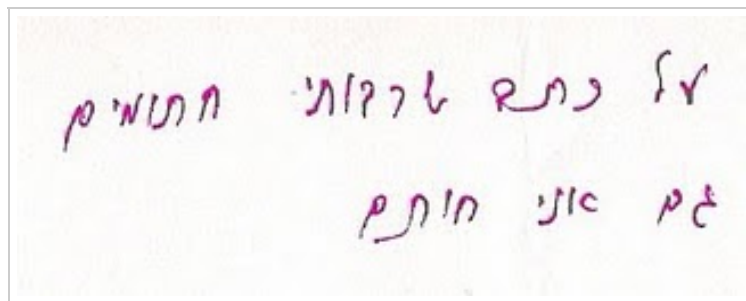 על כתב שרבותי חתומים
גם אני חותם